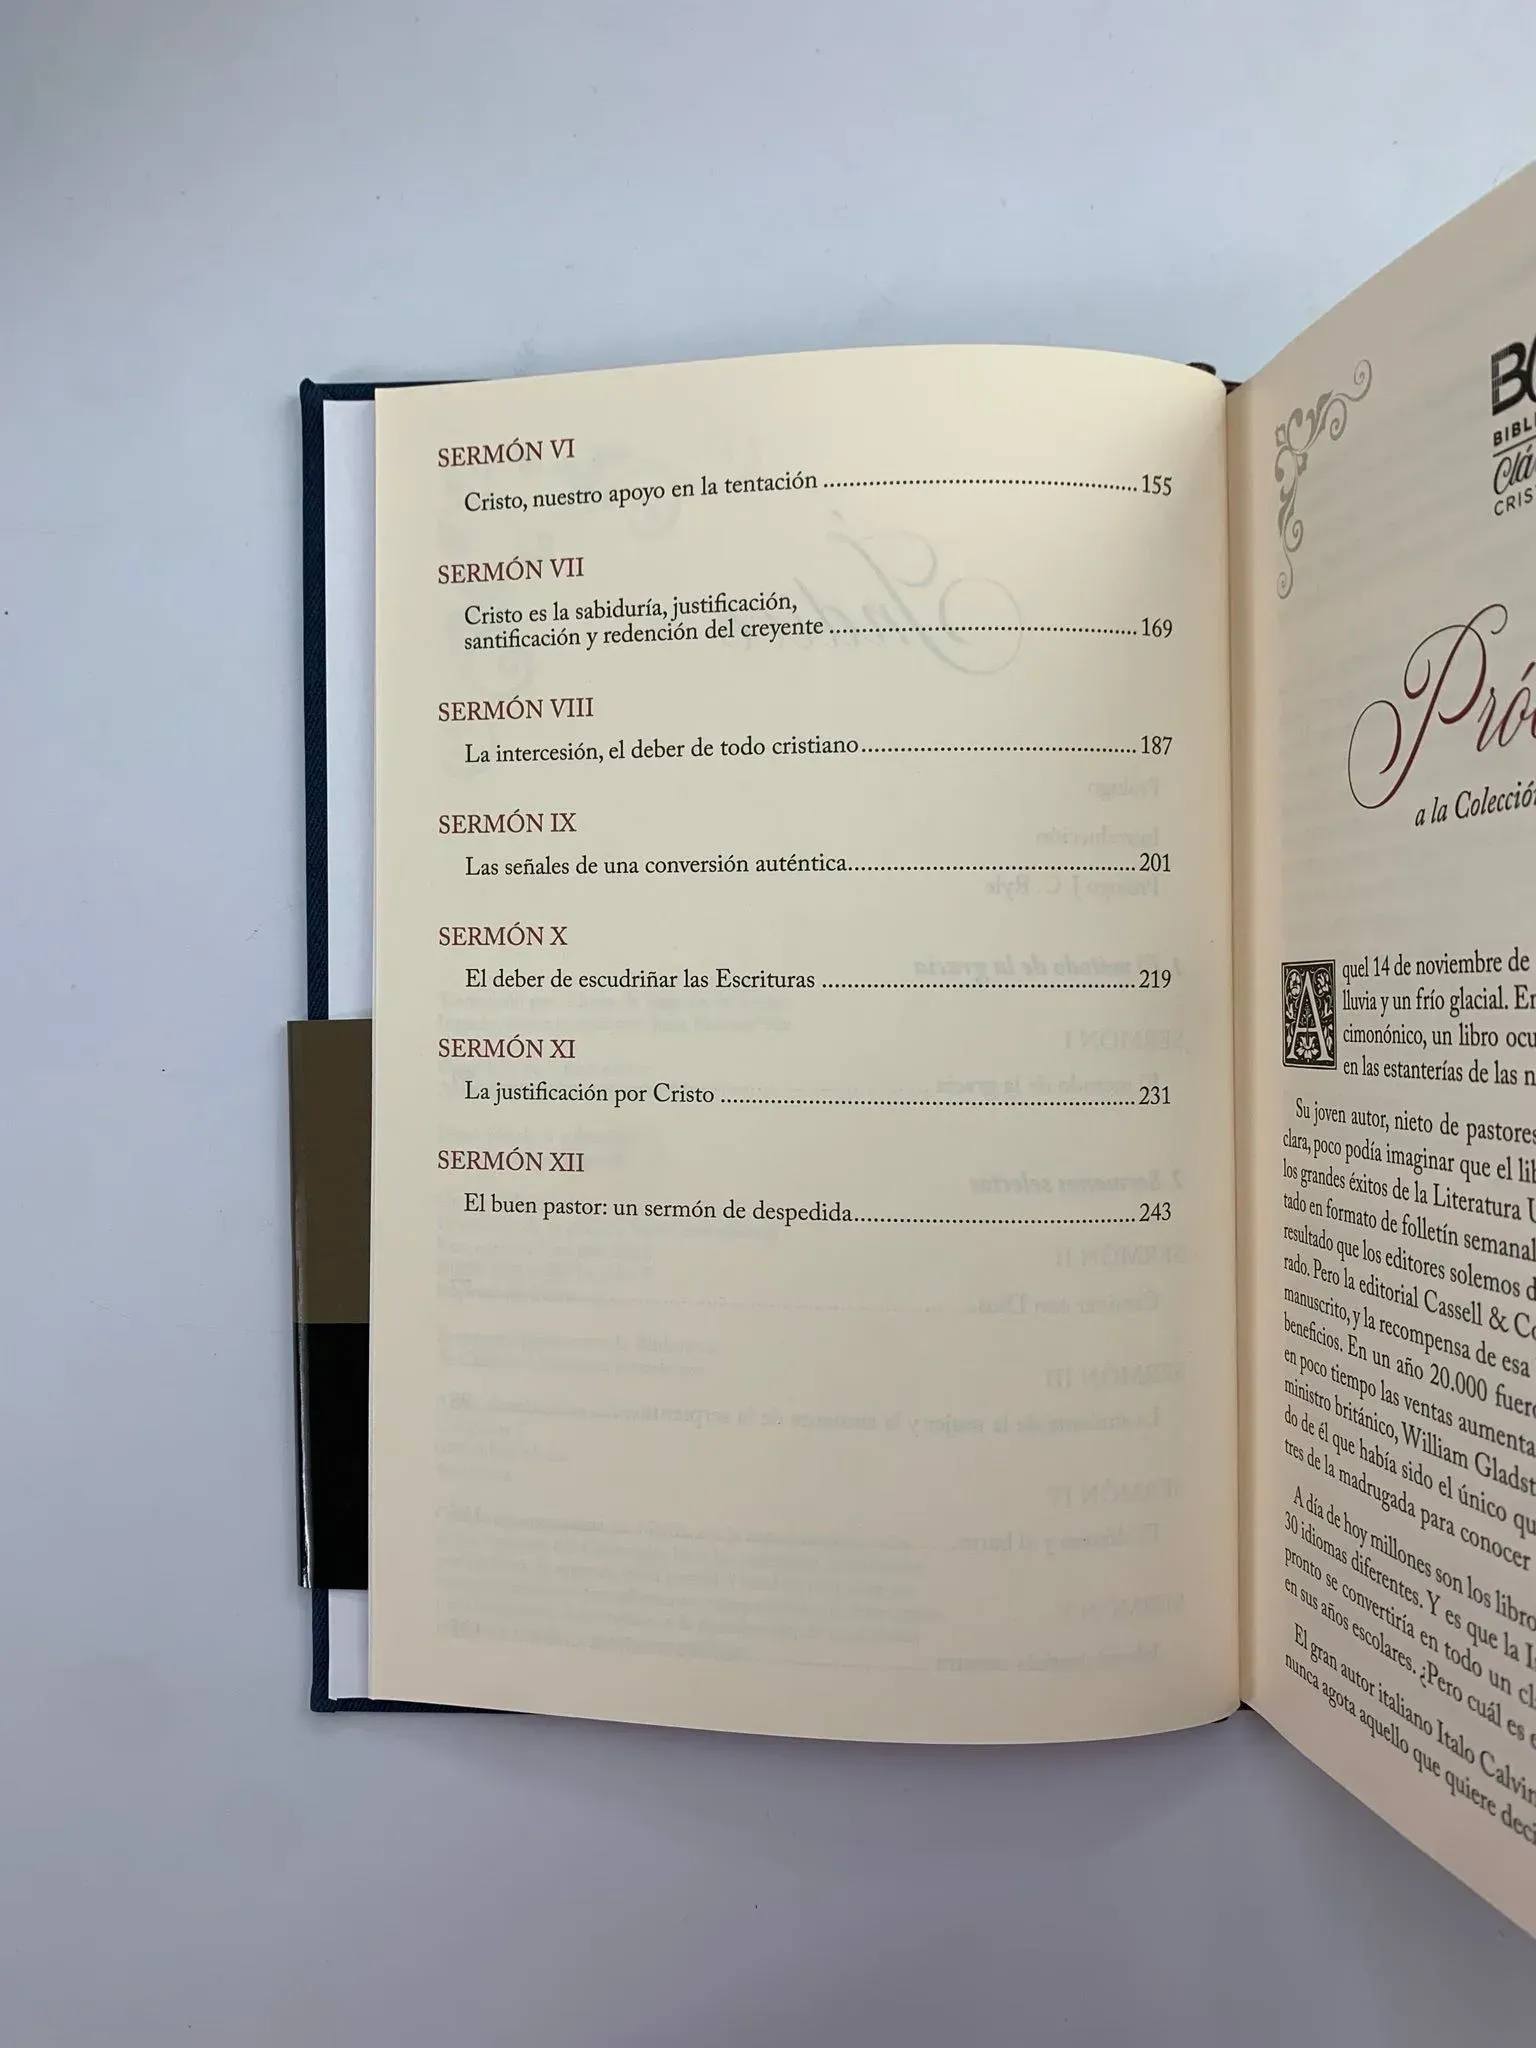 SERMÓN VI
Cristo, nuestro apoyo en la tentación ........................................ 155
SERMÓN VII
Cristo es la sabiduría, justificación,
santificación y redención del creyente ........................................ 169
SERMÓN VIII
La intercesión, el deber de todo cristiano ........................................ 187
SERMÓN IX
Las señales de una conversión auténtica ........................................ 201
SERMÓN X
El deber de escudriñar las Escrituras ........................................ 219
SERMÓN XI
La justificación por Cristo ........................................ 231
SERMÓN XII
El buen pastor: un sermón de despedida ........................................ 243
BIBL
Clá
CRIS
Pró
a la Colección
Aquel 14 de noviembre de
lluvia y un frío glacial. En
cimonónico, un libro ocu
en las estanterías de las n
Su joven autor, nieto de pastores
clara, poco podía imaginar que el lib
los grandes éxitos de la Literatura U
tado en formato de folletín semanal
resultado que los editores solemos d
rado. Pero la editorial Cassell & Co
manuscrito, y la recompensa de esa
beneficios. En un año 20.000 fuer
en poco tiempo las ventas aumenta
ministro británico, William Gladst
do de él que había sido el único qu
tres de la madrugada para conocer
A día de hoy millones son los libro
30 idiomas diferentes. Y es que la I
pronto se convertiría en todo un cl
en sus años escolares. ¿Pero cuál es e
El gran autor italiano Italo Calvin
nunca agota aquello que quiere deci